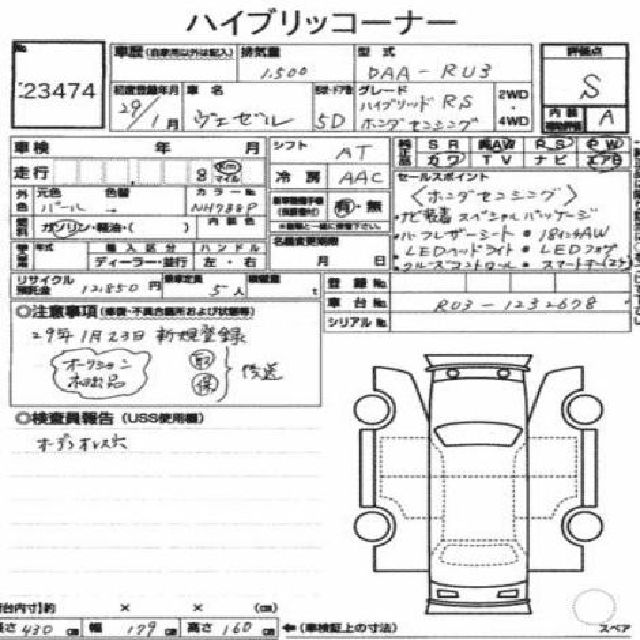 ハイブリッコーナー
No. 23474
車歴 (自家用以外は記入)
排気量 1,500
型式 DAA-RU3
評価点 S
初度登録年月 29/1月
車名 ヴェゼル
ドア数 5D
グレード ハイブリッドRS
ホンダセンシング
2WD・4WD
内装 A
車検 年 月
シフト AT
SR AW PS PW
カワ TV ナビ エアB
走行 8 Km マイル
冷房 AAC
セールスポイント
〈ホンダセンシング〉
・ナビ装着スペシャルパッケージ
・ハーフレザーシート ・18インチAW
・LEDヘッドライト ・LEDフォグ
・クルーズコントロール ・スマートキー(2ケ)
外色 元色 パール 色替 → カラーNo. NH788P
有・無
燃料 ガソリン・軽油・( ) 内装色
名義変更期限 月 日
年式 輸入区分 ハンドル
ディーラー・並行 左・右
リサイクル預託金 12,850円
乗車定員 5人
積載量 t
登録No.
車台No. RU3-1232678
シリアルNo.
◎注意事項 (修復・不具合箇所および状態等)
29年1月23日 新規登録
オークション
取 保 後送
◎検査員報告 (USS使用欄)
オーデオレス
荷台内寸)約 × × (cm)
長さ 430 cm 幅 179 cm 高さ 160 cm ←(車検証上の寸法)
スペア